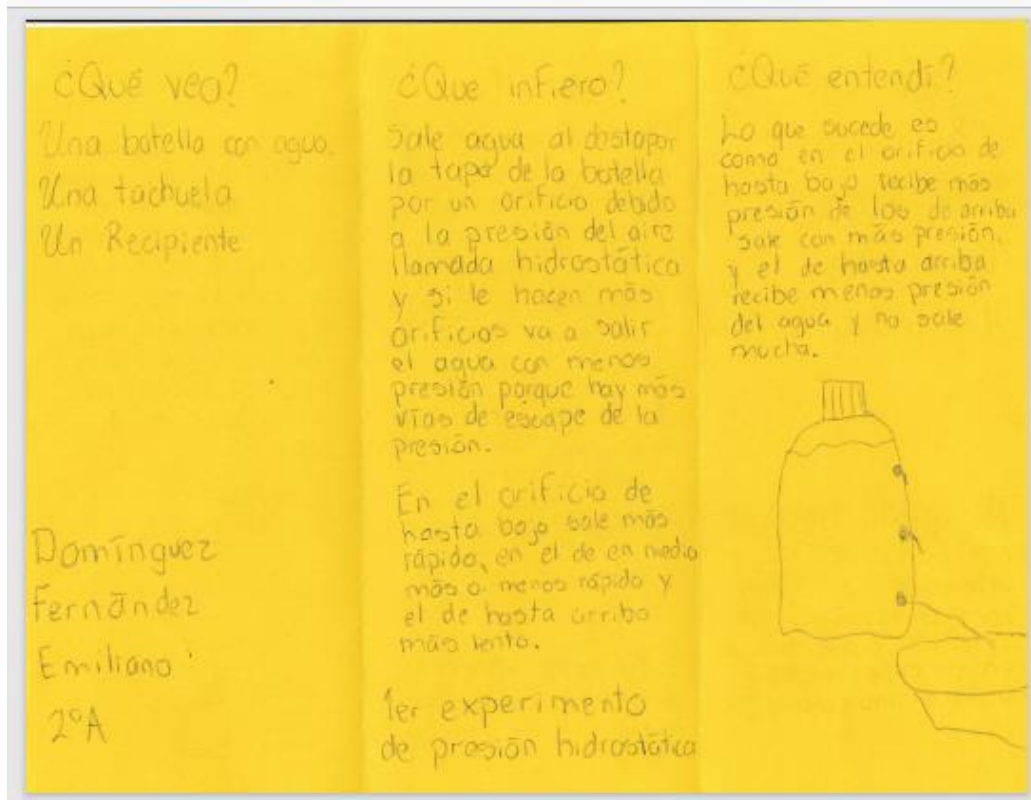 ¿Qué veo?
Una botella con agua.
Una tachuela
Un Recipiente
Domínguez
Fernández
Emiliano
2°A
¿Que infiero?
Sale agua al destapar
la tapa de la botella
por un orificio debido
a la presión del aire
llamada hidrostática
y si le hacen más
orificios va a salir
el agua con menos
presión porque hay más
vías de escape de la
presión.
En el orificio de
hasta bajo sale más
rápido, en el de en medio
más o menos rápido y
el de hasta arriba
más lento.
1er experimento
de presión hidrostática
¿Qué entendí?
Lo que sucede es
como en el orificio de
hasta bajo recibe más
presión de los de arriba
sale con más presión,
y el de hasta arriba
recibe menos presión
del agua y no sale
mucha.